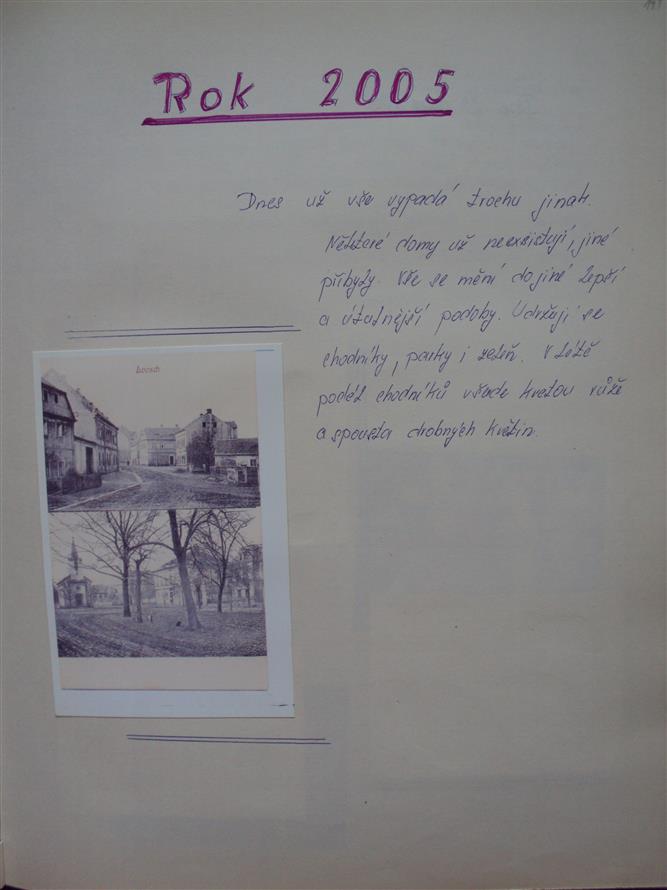 Rok 2005
Dnes už vše vypadá trochu jinak.
Některé domy už neexistují, jiné
přibyly. Vše se mění do jiné lepší
a útulnější podoby. Udržují se
chodníky, parky i zeleň. V létě
podél chodníků všude kvetou růže
a spousta drobných květin.